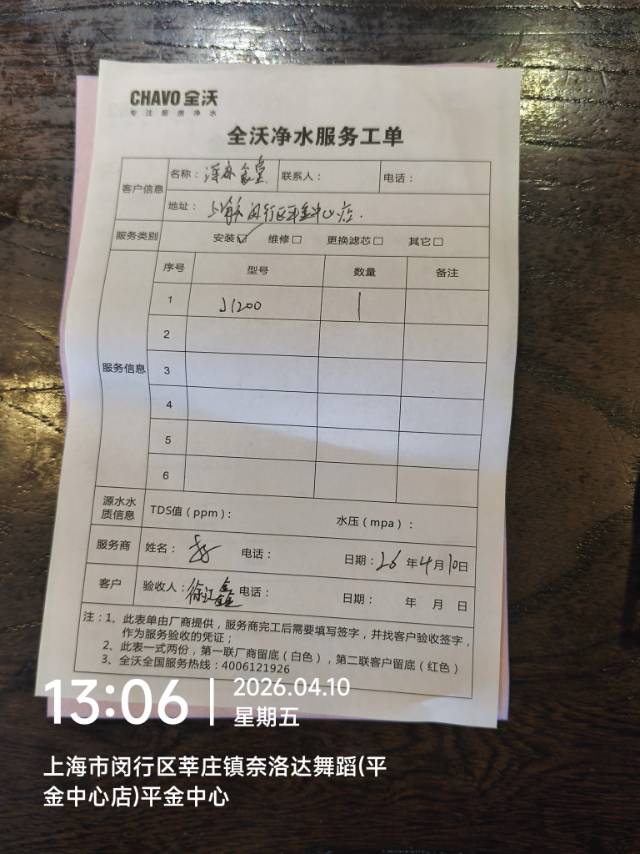 CHAVO 全沃
专注厨房净水
全沃净水服务工单
客户信息 名称：深夜食堂 联系人： 电话：
地址：上海市闵行区平金中心店.
服务类别 安装☑ 维修□ 更换滤芯□ 其它□
服务信息 序号 型号 数量 备注
1 J1200 1
2
3
4
5
6
源水水质信息 TDS值（ppm）： 水压（mpa）：
服务商 姓名： 电话： 日期：26年4月10日
客户 验收人：徐江鑫 电话： 日期： 年 月 日
注：1、此表单由厂商提供，服务商完工后需要填写签字，并找客户验收签字，
作为服务验收的凭证；
2、此表一式两份，第一联厂商留底（白色），第二联客户留底（红色）
3、全沃全国服务热线：4006121926
13:06
2026.04.10
星期五
上海市闵行区莘庄镇奈洛达舞蹈(平
金中心店)平金中心